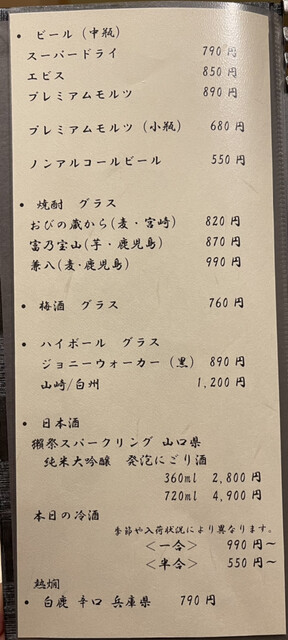 ・ ビール（中瓶）
スーパードライ 790円
エビス 850円
プレミアムモルツ 890円
プレミアムモルツ（小瓶） 680円
ノンアルコールビール 550円
・ 焼酎 グラス
おびの蔵から(麦・宮崎) 820円
富乃宝山(芋・鹿児島) 870円
兼八(麦・鹿児島) 990円
・ 梅酒 グラス 760円
・ ハイボール グラス
ジョニーウォーカー（黒） 890円
山崎/白州 1,200円
・ 日本酒
獺祭スパークリング 山口県
純米大吟醸 発泡にごり酒
360ml 2,800円
720ml 4,900円
本日の冷酒
季節や入荷状況により異なります。
＜一合＞ 990円～
＜半合＞ 550円～
熱燗
・ 白鹿 辛口 兵庫県 790円